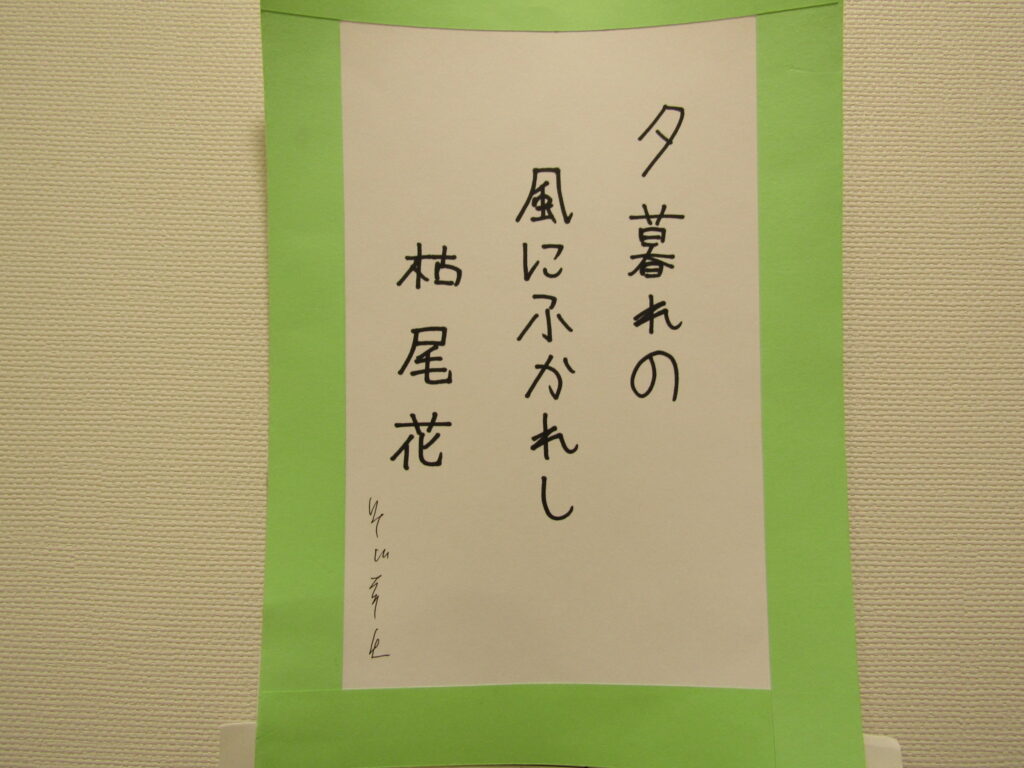 夕暮れの
風にふかれし
枯尾花